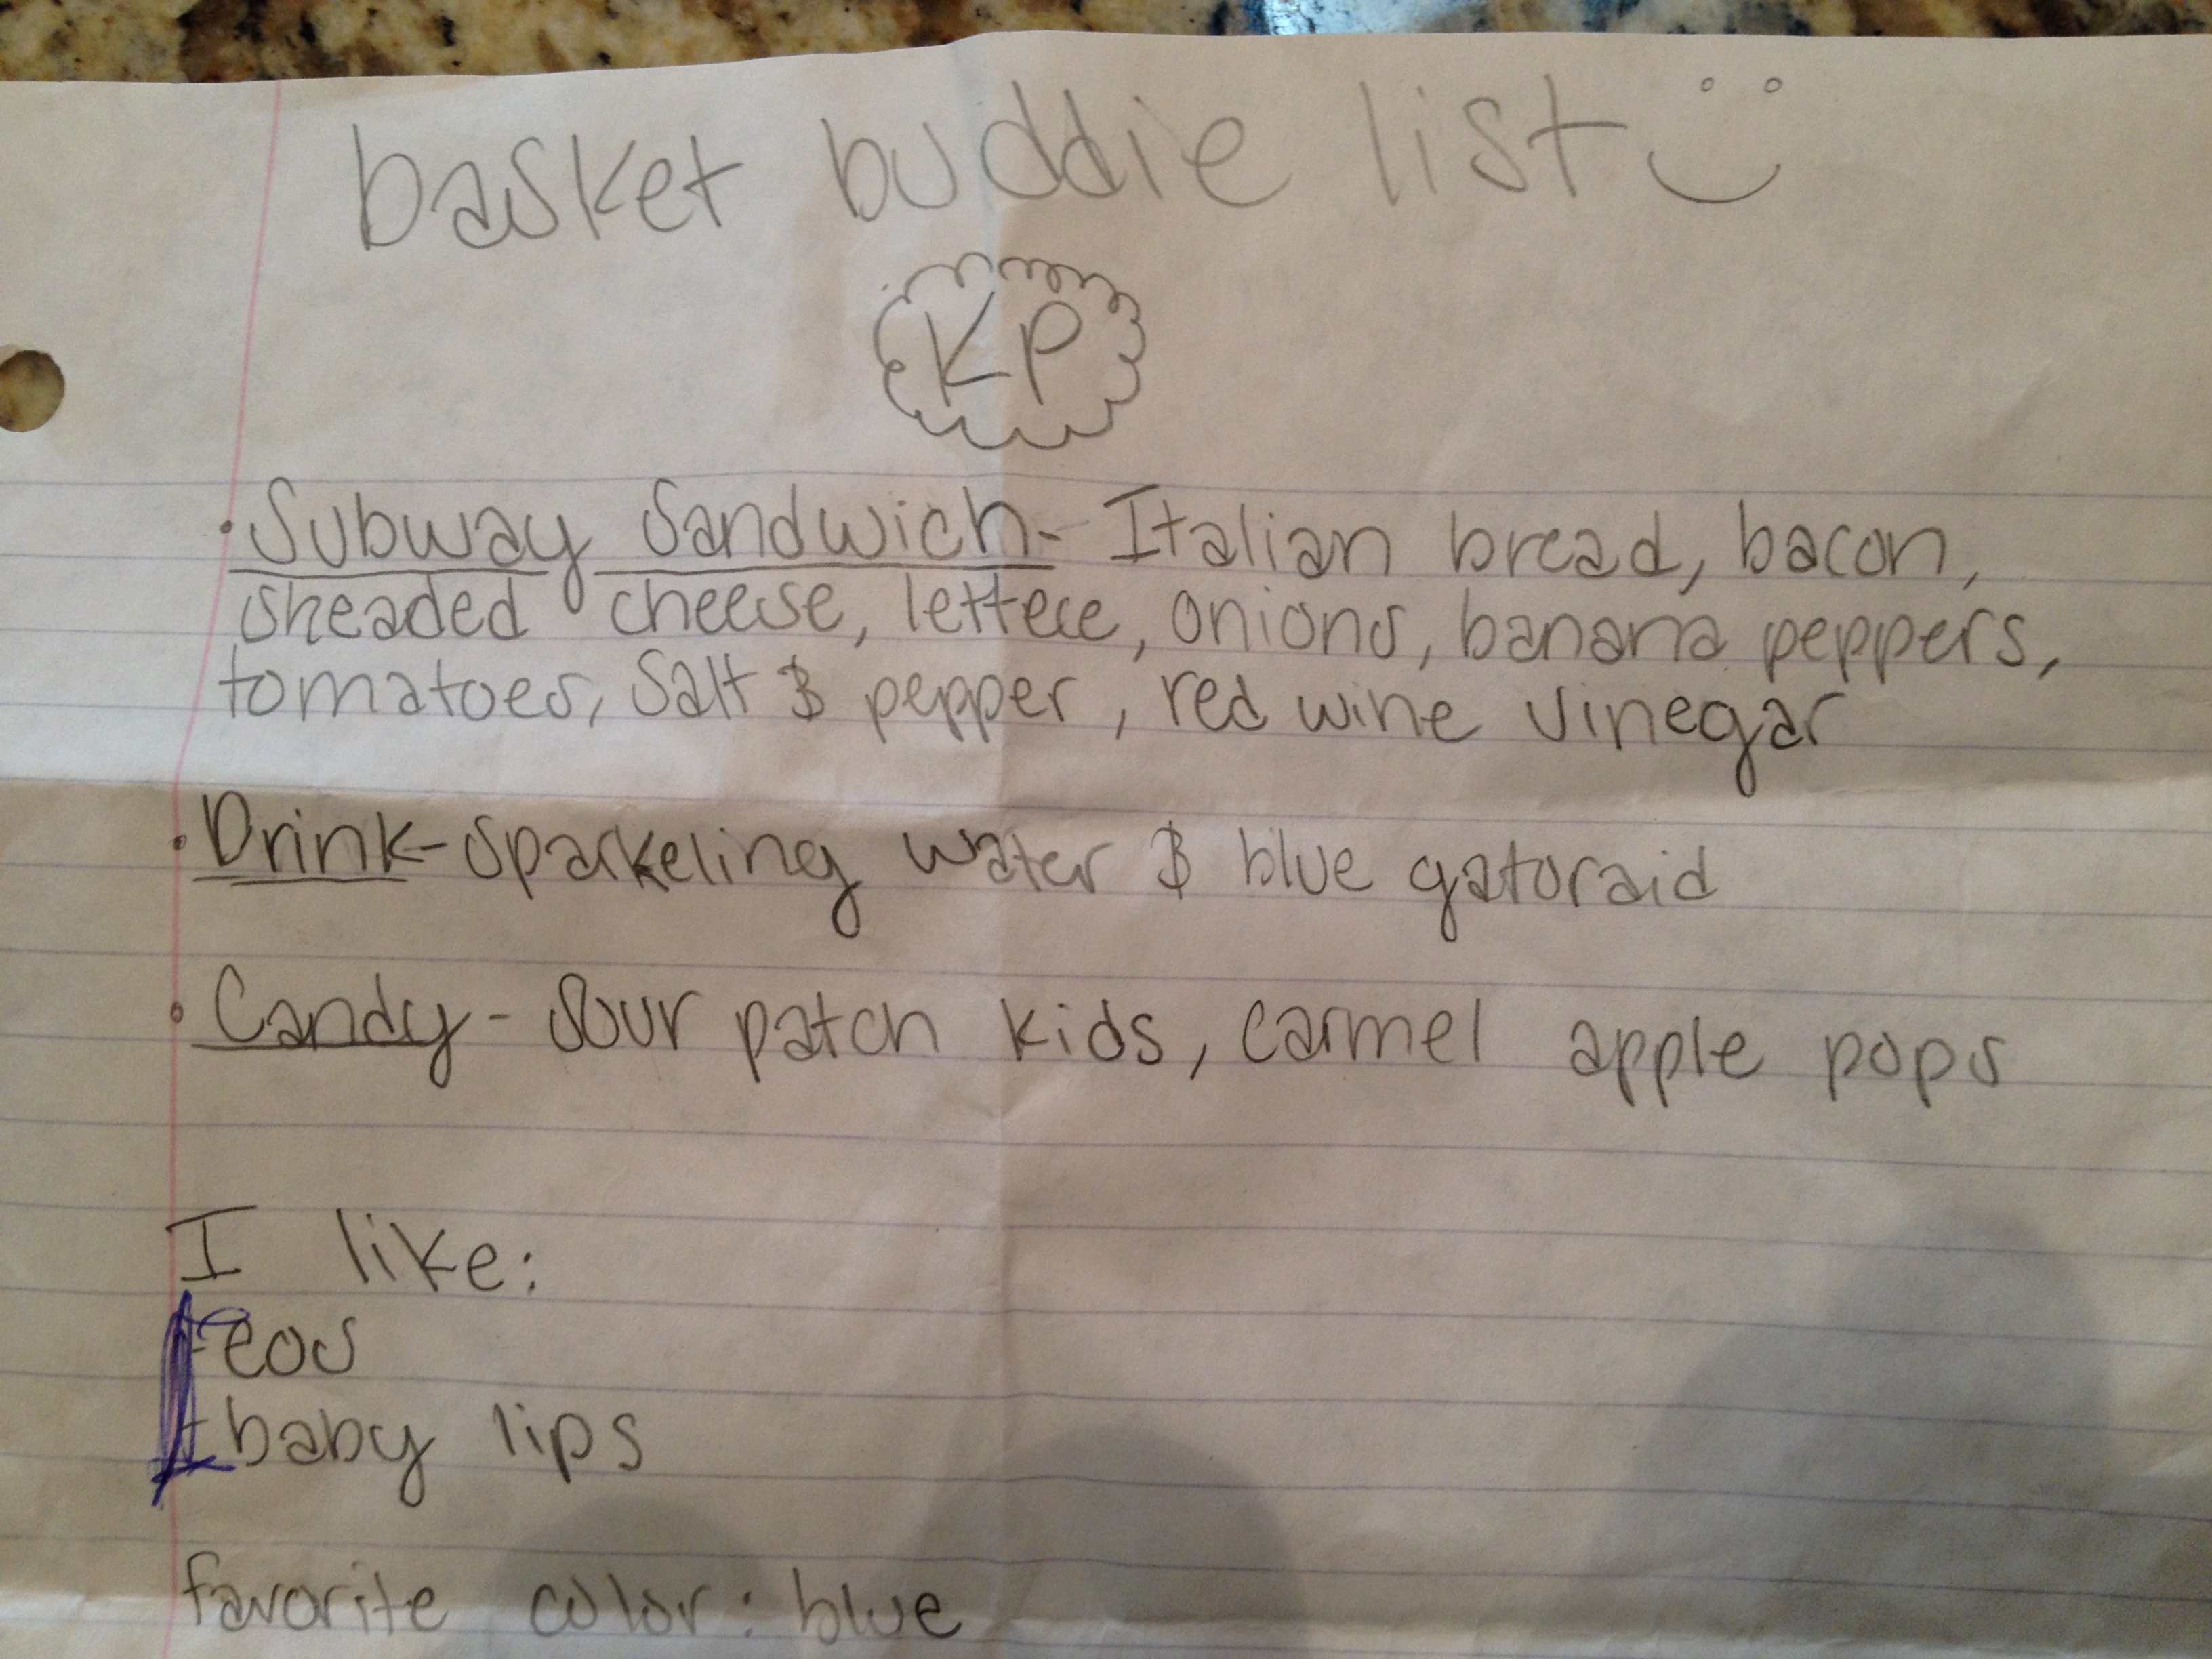 basket buddie list
KP
• Subway Sandwich - Italian bread, bacon,
sheaded cheese, lettece, onions, banana peppers,
tomatoes, Salt & pepper, red wine vinegar
• Drink - Sparkeling water & blue gatoraid
• Candy - Sour patch kids, carmel apple pops
I like:
- eos
- baby lips
favorite color: blue